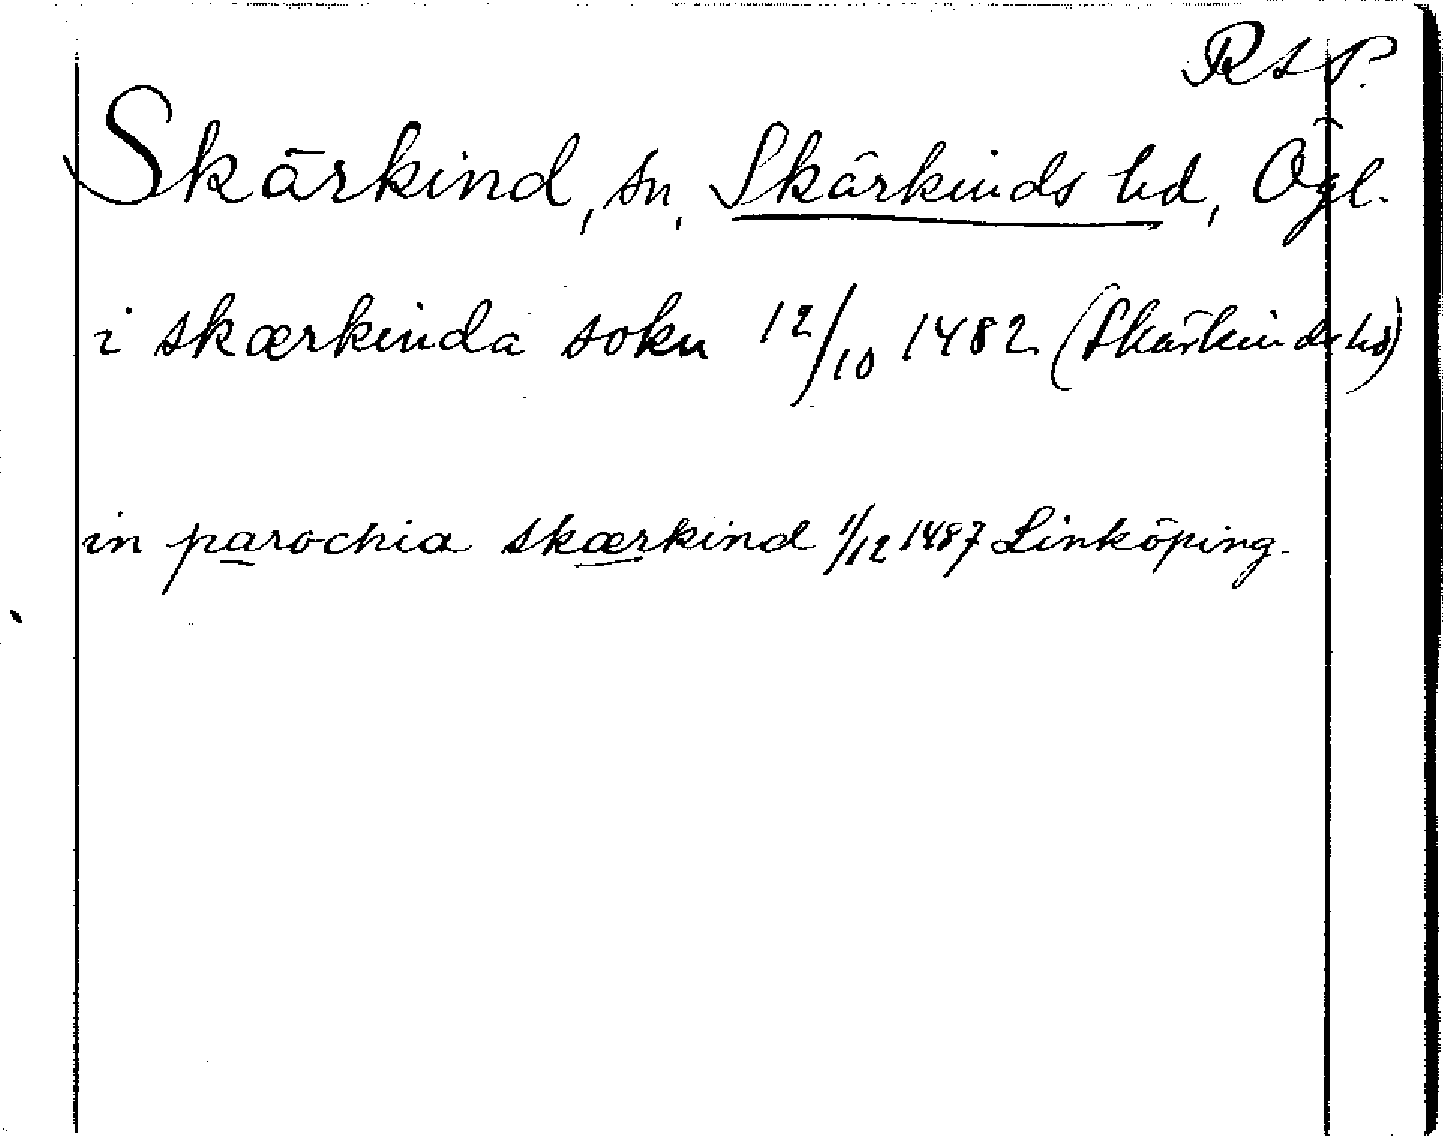 RAP.
Skärkind, sn, Skärkinds hd, Ögl.
i skærkinda sokn 12/10 1482 (Skärkinds hd)
in parochia skærkind 1/12 1487 Linköping.